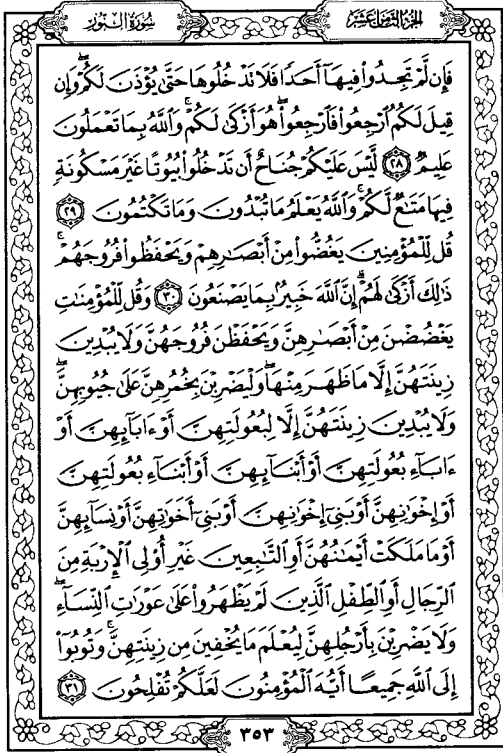 الجزء الثامن عشر
سورة النور
فَإِن لَّمْ تَجِدُوا۟ فِيهَآ أَحَدًا فَلَا تَدْخُلُوهَا حَتَّىٰ يُؤْذَنَ لَكُمْ ۖ وَإِن
قِيلَ لَكُمُ ٱرْجِعُوا۟ فَٱرْجِعُوا۟ ۖ هُوَ أَزْكَىٰ لَكُمْ ۚ وَٱللَّهُ بِمَا تَعْمَلُونَ
عَلِيمٌ ﴿٢٨﴾ لَّيْسَ عَلَيْكُمْ جُنَاحٌ أَن تَدْخُلُوا۟ بُيُوتًا غَيْرَ مَسْكُونَةٍ
فِيهَا مَتَٰعٌ لَّكُمْ ۚ وَٱللَّهُ يَعْلَمُ مَا تُبْدُونَ وَمَا تَكْتُمُونَ ﴿٢٩﴾
قُل لِّلْمُؤْمِنِينَ يَغُضُّوا۟ مِنْ أَبْصَٰرِهِمْ وَيَحْفَظُوا۟ فُرُوجَهُمْ ۚ
ذَٰلِكَ أَزْكَىٰ لَهُمْ ۗ إِنَّ ٱللَّهَ خَبِيرٌۢ بِمَا يَصْنَعُونَ ﴿٣٠﴾ وَقُل لِّلْمُؤْمِنَٰتِ
يَغْضُضْنَ مِنْ أَبْصَٰرِهِنَّ وَيَحْفَظْنَ فُرُوجَهُنَّ وَلَا يُبْدِينَ
زِينَتَهُنَّ إِلَّا مَا ظَهَرَ مِنْهَا ۖ وَلْيَضْرِبْنَ بِخُمُرِهِنَّ عَلَىٰ جُيُوبِهِنَّ ۖ
وَلَا يُبْدِينَ زِينَتَهُنَّ إِلَّا لِبُعُولَتِهِنَّ أَوْ ءَابَآئِهِنَّ أَوْ
ءَابَآءِ بُعُولَتِهِنَّ أَوْ أَبْنَآئِهِنَّ أَوْ أَبْنَآءِ بُعُولَتِهِنَّ
أَوْ إِخْوَٰنِهِنَّ أَوْ بَنِىٓ إِخْوَٰنِهِنَّ أَوْ بَنِىٓ أَخَوَٰتِهِنَّ أَوْ نِسَآئِهِنَّ
أَوْ مَا مَلَكَتْ أَيْمَٰنُهُنَّ أَوِ ٱلتَّٰبِعِينَ غَيْرِ أُو۟لِى ٱلْإِرْبَةِ مِنَ
ٱلرِّجَالِ أَوِ ٱلطِّفْلِ ٱلَّذِينَ لَمْ يَظْهَرُوا۟ عَلَىٰ عَوْرَٰتِ ٱلنِّسَآءِ ۖ
وَلَا يَضْرِبْنَ بِأَرْجُلِهِنَّ لِيُعْلَمَ مَا يُخْفِينَ مِن زِينَتِهِنَّ ۚ وَتُوبُوٓا۟
إِلَى ٱللَّهِ جَمِيعًا أَيُّهَ ٱلْمُؤْمِنُونَ لَعَلَّكُمْ تُفْلِحُونَ ﴿٣١﴾
٣٥٣